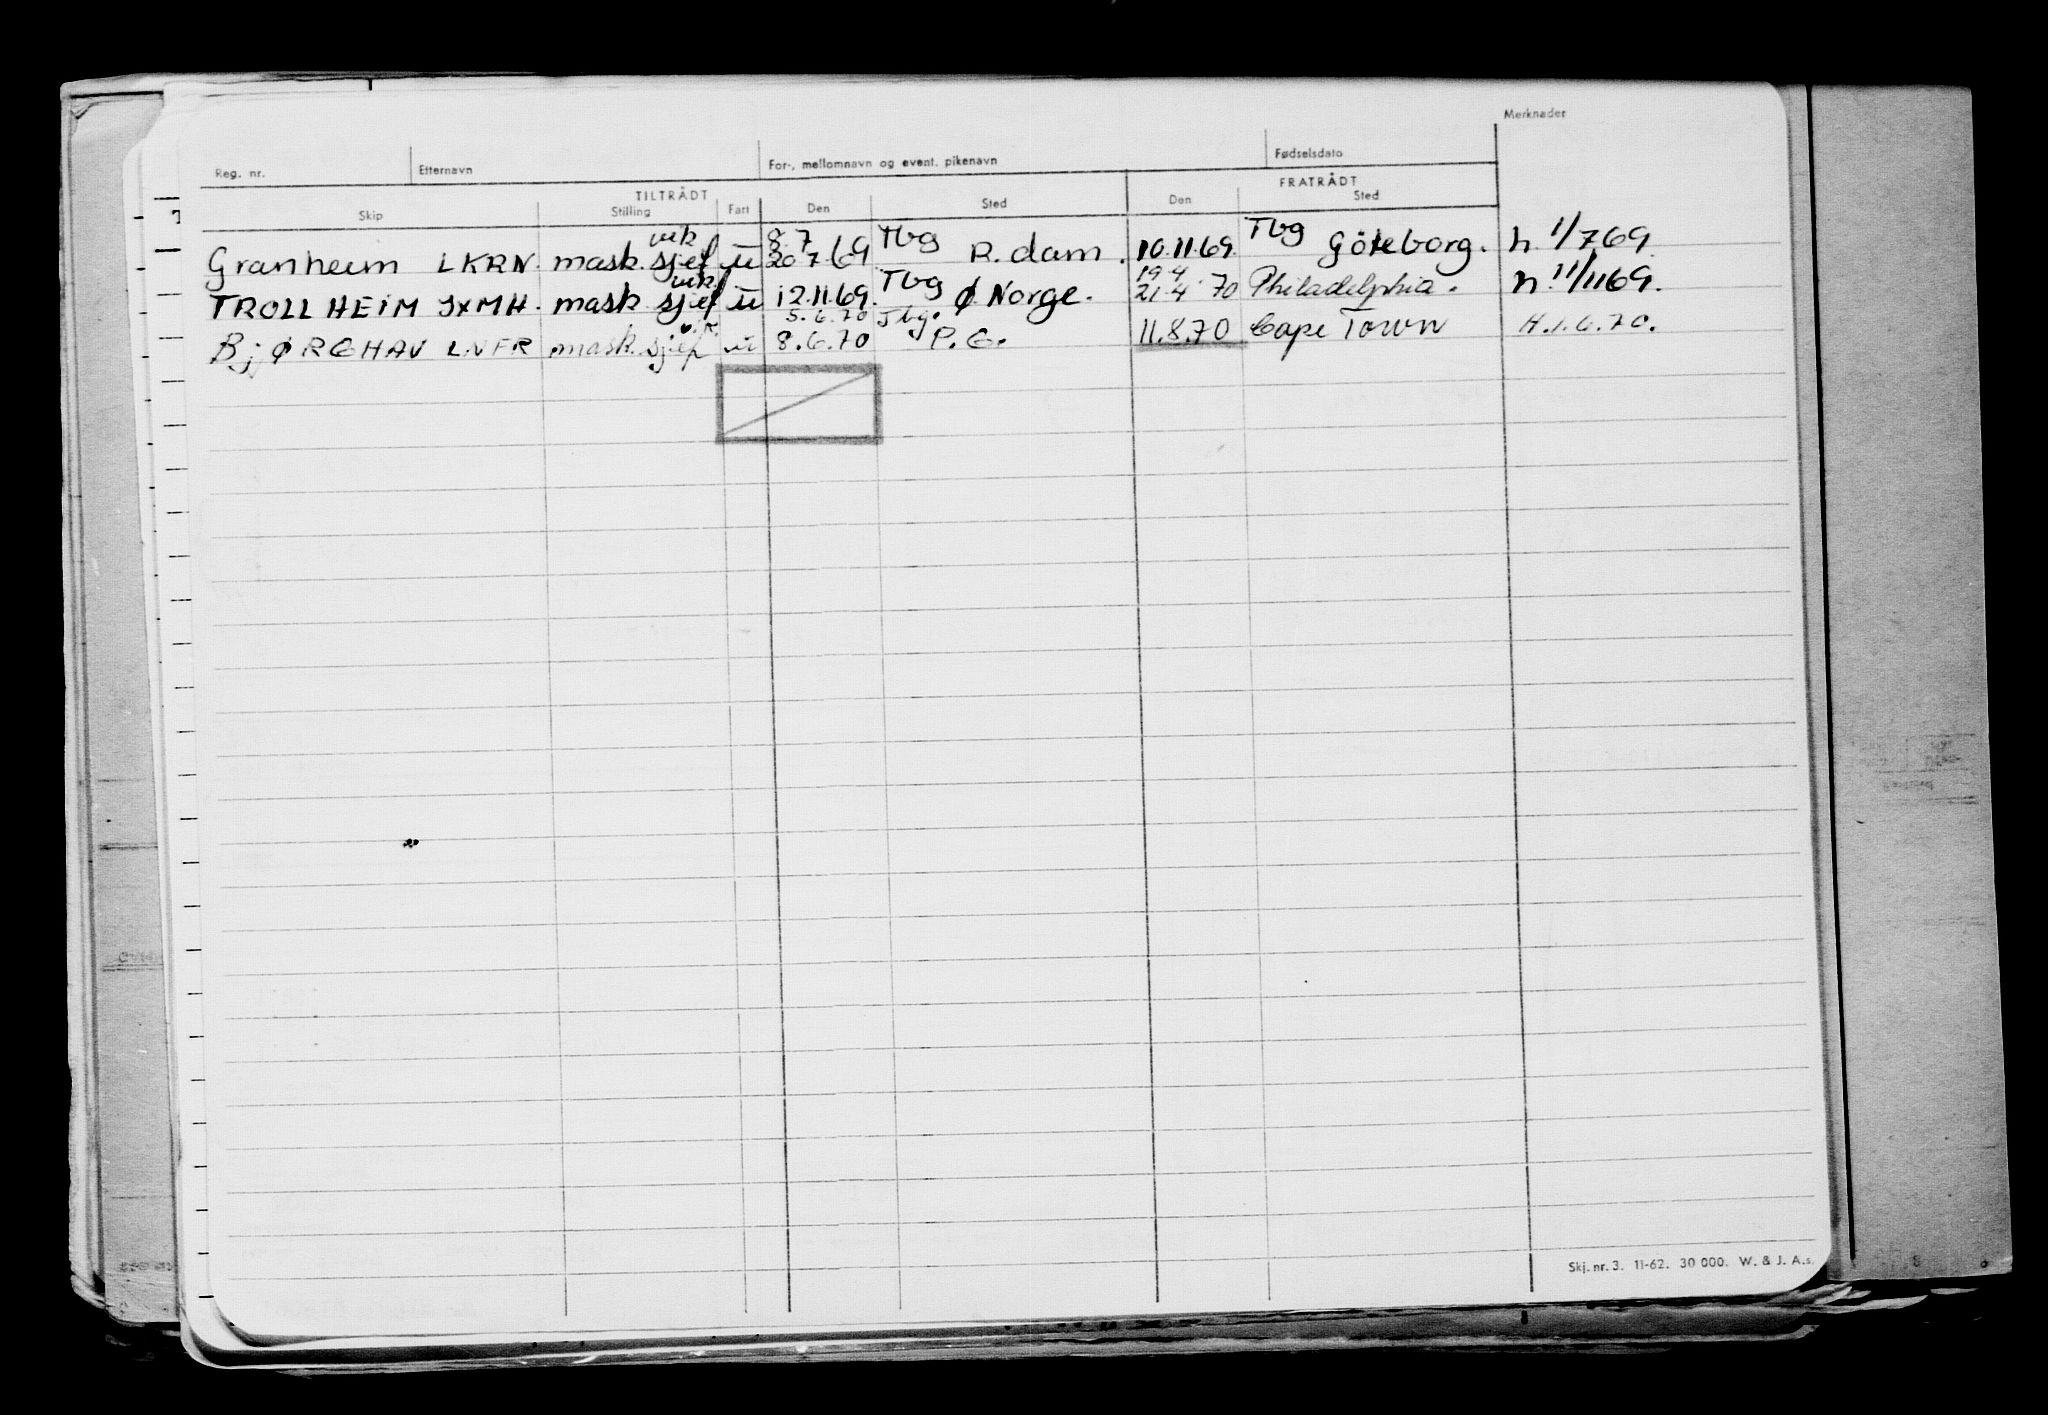 Merknader
Reg. nr. Etternavn For-, mellomnavn og event. pikenavn Fødselsdato
TILTRÅDT FRATRÅDT
Skip Stilling Fart Den Sted Den Sted
vik 8. 7 Tbg Tbg
Granheim LKRN. mask. sjef u 20 7 69 R. dam. 10.11.69. Göteborg. h. 1/7 69.
vik. Tbg 19 4
TROLLHEIM JXMH. mask sjef u 12.11.69. Ø Norge. 21 4 70 Philadelphia. h. 11/11 69.
vik 5.6.70 Tbg.
BjØRGHAV LNFR mask. sjef u 8.6.70 P.G. 11.8.70 Cape Town H.1.6.70.
Skj. nr. 3. 11-62. 30 000. W. & J. A.s.